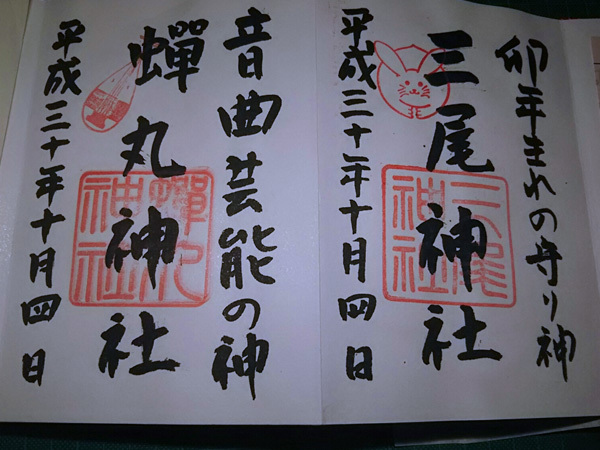 卯年まれの守り神
三尾神社
三尾神社
平成三十年十月四日
音曲芸能の神
蟬丸神社
蟬丸神社
平成三十年十月四日